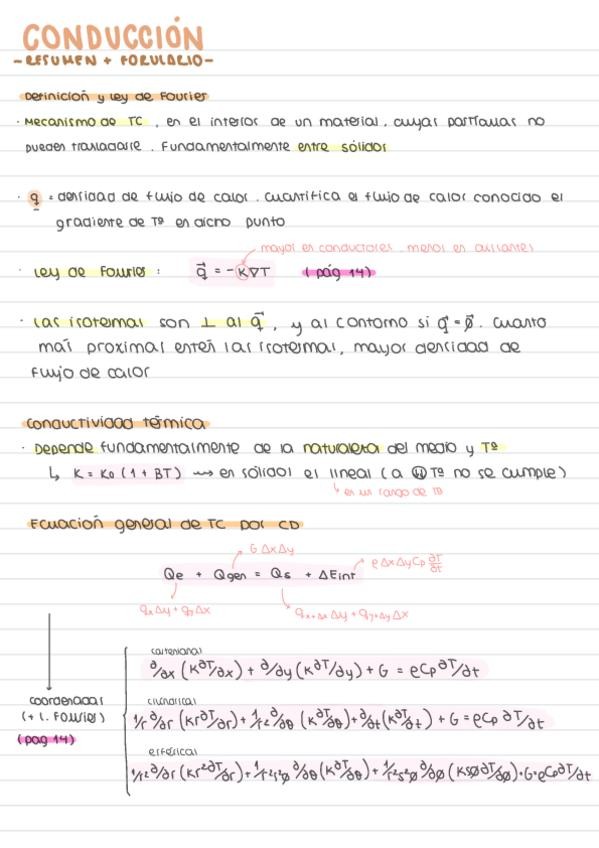 CONDUCCIÓN
-RESUMEN + FORULARIO-
Definición y Ley de Fourier
· Mecanismo de TC, en el interior de un material, cuyas partículas no
pueden trasladarse. Fundamentalmente entre sólidos
· q = densidad de flujo de calor. cuantifica el flujo de calor conocido el
gradiente de Tª en dicho punto
mayor en conductores, menor en aislantes
· Ley de Fourier : q⃗ = -K∇T (pág 14)
· Las isotermas son ⊥ al q⃗, y al contorno si q⃗ = ∅. Cuanto
más proximas estén las isotermas, mayor densidad de
flujo de calor
Conductividad térmica
· Depende fundamentalmente de la naturaleza del medio y Tª
↳ K = K₀ (1 + BT) ⟿ en sólidos es lineal (a Tª no se cumple)
↳ en un rango de
Ecuación general de TC por CD
G Δx Δy
ρ Δx Δy Cp ∂T/∂t
Qe + Qgen = Qs + ΔEint
qx Δy + qy Δx
qx+Δx Δy + qy+Δy Δx
coordenadas
(+ l. Fourier)
(pag 14)
cartesianas
∂/∂x (K∂T/∂x) + ∂/∂y (K∂T/∂y) + G = ρCp ∂T/∂t
cilíndricas
1/r ∂/∂r (Kr∂T/∂r) + 1/r² ∂/∂θ (K∂T/∂θ) + ∂/∂t (K∂T/∂t) + G = ρCp ∂T/∂t
esféricas
1/r² ∂/∂r (Kr²∂T/∂r) + 1/r²s²ø ∂/∂θ (K∂T/∂θ) + 1/r²s²ø ∂/∂ø (Ksø∂T/∂ø) + G = ρCp ∂T/∂t